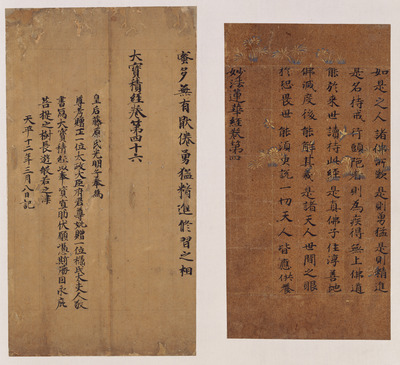 如是之人 諸佛所歎 是則勇猛 是則精進
是名持戒 行頭陀者 則為疾得 無上佛道
能於來世 讀持此經 是真佛子 住淳善地
佛滅度後 能解其義 是諸天人 世間之眼
於恐畏世 能須臾說 一切天人 皆應供養
妙法蓮華經卷第四
蜜多無有厭倦勇猛精進修習之相
大寶積經卷第四十六
皇后藤原氏光明子奉為
尊考贈正一位太政太臣府君尊妣贈一位橘氏太夫人敬
書寫大寶積經以奉資助伏願憑斯永庇
菩提之樹長遊般若之津
天平十二年三月八日記